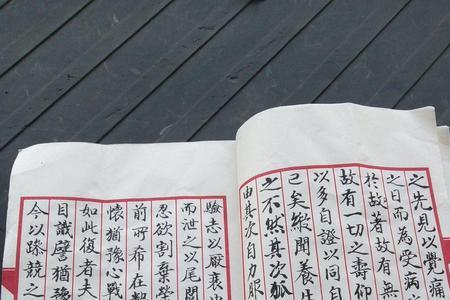 之先見以覺痛
之日而為受病
於故著故有無
故有一切之壽仰
以多自證以同自
已矣縱聞養生
之不然其次狐
由其次自力服
驗志以厭衰中
而泄之以尾閭
忍欲割棄榮
前所希在數
懷猶豫心戰
如此復者夫
目識譬猶豫
今以躁競之